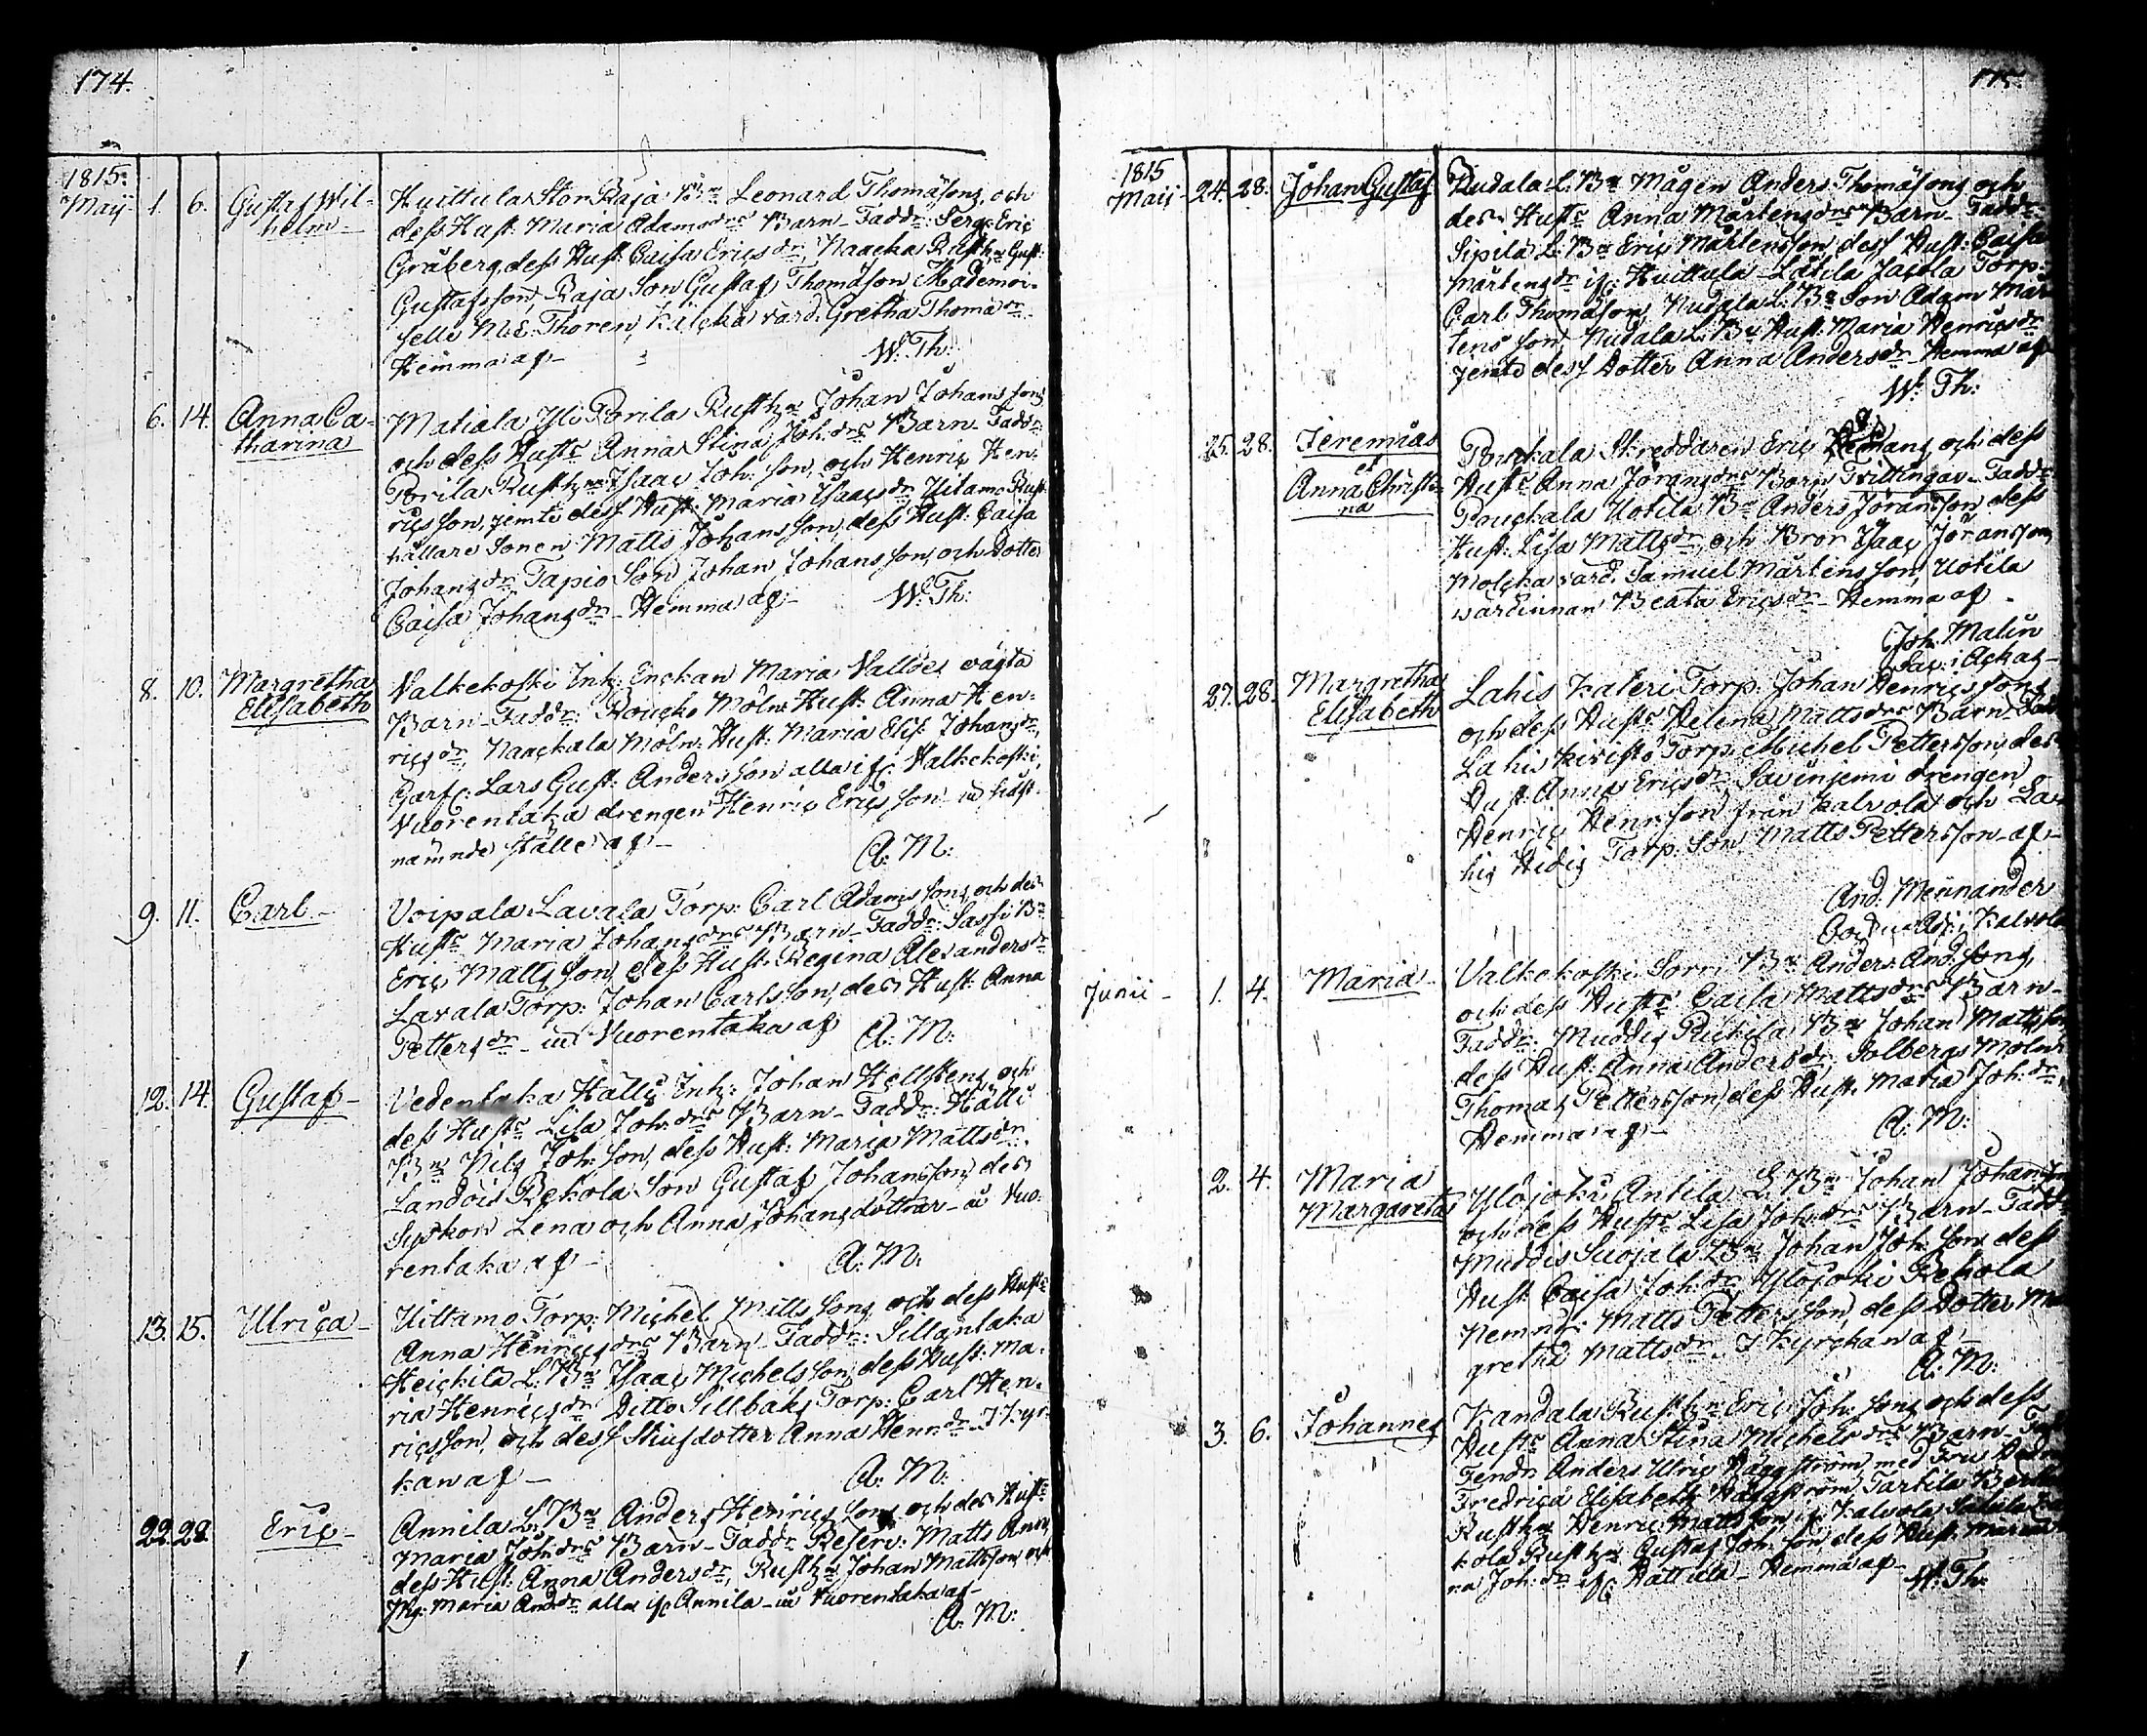 174.
1815.
Maij 1. 6. Gustaf Wil-
helm
Huittula Stor Raja Bn Leonard Thomæsons, och
dess Hust. Maria Adamsdrs Barn. Faddr: Serg: Eric
Gråberg, dess Hust. Caisa Ericsdr, Naacka Rusth. Gust:
Gustafsson, Raja Son Gustaf Thomæson Mademoi-
selle M: E: Thoren, vard. Gretha Thomædr
Hemma af
W: Th:
6. 14. Anna Ca-
tharina
Matiala Yli Porila Rusthn Johan Johanssons
och dess Hustr Anna Stina Joh:drs Barn. Faddr
Porila Rusthn Isaac Joh: son, och Henric Hen-
ricsson, jemte dess Hust: Maria Isaacsdr Uitamo Rust-
hållare Sonen Matts Johansson, dess Hust: Caisa
Johansdr Tapio Son Johan Johansson, och Dotter
Caisa Johansdr. Hemma af
W: Th:
8. 10. Margretha
Elisabeth
Valkekoski Inh: Enckan Maria oägta
Barn. Faddr: Roucko Möln: Hust: Anna Hen-
ricsdr, Naackala Möln: Hust: Maria Elis: Johansdr,
Garfv: Lars Gust: Andersson alla if: Valkekoski,
Vuorentaka drengen Henric Ericsson. uti sidst.
nämnde ställe af
A: M:
9. 11. Carl
Voipala Lavala Torp: Carl Adamssons, och des
Hustr Maria Johansdrs Barn. Faddr: Sassi Bn
Eric Mattsson, dess Hust: Regina Alexandersdr
Lavala Torp: Johan Carlsson, des Hust: Anna
Pettersdr. uti Vuorentaka af
A: M:
12. 14. Gustaf
Vedentaka Halli Inh: Johan Hellstens, och
dess Hustr Lisa Joh:drs Barn. Faddr: Halli
Bn Nils Joh: son, dess Hust: Maria Mattsdr
Landois Rekola Son Gustaf Johansson, des
Syskon Lena och Anna Johansdöttrar. uti Vuo-
rentaka af
A: M:
13. 15. Ulrica
Uittamo Torp: Michel Mattssons, och dess Hustr
Anna Henricsdrs Barn. Faddr: Sillantaka
Heickilä L: Bn Isaac Michelsson, dess Hust: Ma-
ria Henricsdr Ditto Sillbaks Torp: Carl Hen-
ricsson, och dess Stiufdotter Anna Henr:dr. I Kyr-
kan af
A: M:
22. 28. Eric
Annila L: Bn Anders Henricssons, och des Hustr
Maria Joh:drs Barn. Faddr Reserv: Matts
dess Hust: Anna Andersdr, Rusthn Johan Mattsson, och
Pig: Maria And:dr alla if: Annila. uti Vuorentaka af
A: M:
175.
1815
Maij 24. 28. Johan Gustaf
Nudala L: Bn Mågen Anders Thomæsons och
des Hustr Anna Mårtensdrs Barn. Faddr.
Sipilä L: Bn Eric Mårtensson dess Hust: Caisa
Mårtensdr if: Huittula Lätilä Jacola Torp:
Carl Thomæson, Nudala L: Bn Son Adam Mår-
tens son, Nudala L: Bn Hust: Maria Henricsdr
jemte dess Dotter Anna Andersdr. Hemma af
W: Th:
25. 28. Jeremias
et
Anna Christi-
na
Pouckala Skreddaren Eric och dess
Hustr Anna Joransdrs Barn, Tvillingar. Faddr
Pouckala Uotila Bn Anders Joransson, dess
Hust: Lisa Mattsdr, och Bror Isaac Joransson,
Molcka vard. Samuel Mårtensson, Uotila
wärdinnan Beata Ericsdr. Hemma af
Joh: Malin
Sac: i Ackas
27. 28. Margretha
Elisabeth
Lahis Kateri Torp: Johan Henricssons
och dess Hustr Helena Mattsdrs Barn.
Lahis Kivistö Torp: Michel Pettersson, des
Hust: Annas Ericsdr Savinjemi drengen
Henric Henr:son från Kalvola och La-
his Hidis Torp: Son Matts Pettersson. af
And. Mennander
Kalvola
Junii 1. 4. Maria
Valkekoski Sorri Bn Anders And:sons,
och dess Hustr: Caisa Mattsdrs Barn.
Faddr: Muddis Bn Johan Mattsson
dess Hust: Anna Andersdr, Solbergs Möln:
Thomas Pettersson, dess Hust: Maria Joh:dr,
Hemma af
A: M:
2. 4. Maria
Margareta
Ylöjoki Antila L: Bn Johan
och dess Hustr Lisa Joh:drs Barn. Faddr
Muddis Suojala Bn Johan Joh: son, dess
Hust: Caisa Joh:dr Ylöjoki Rekola
Nemnd: Matts Pettersson, dess Dotter Mar-
gretha Mattsdr. I Kyrckan af
A: M:
3. 6. Johannes
Kandala Rusthn Eric Joh: sons, och dess
Hustr Anna Stina Michelsdrs Barn.
Fendr: Anders Ulric Häggström, med Fru
Fredrica Elisabeth Häggström, Tarkila
Rusthn Henric Mattsson if: Kalvola
kola Rusthn Gustaf Joh: son dess Hust:
na Joh:dr if: Hattula. Hemma af
W: Th: